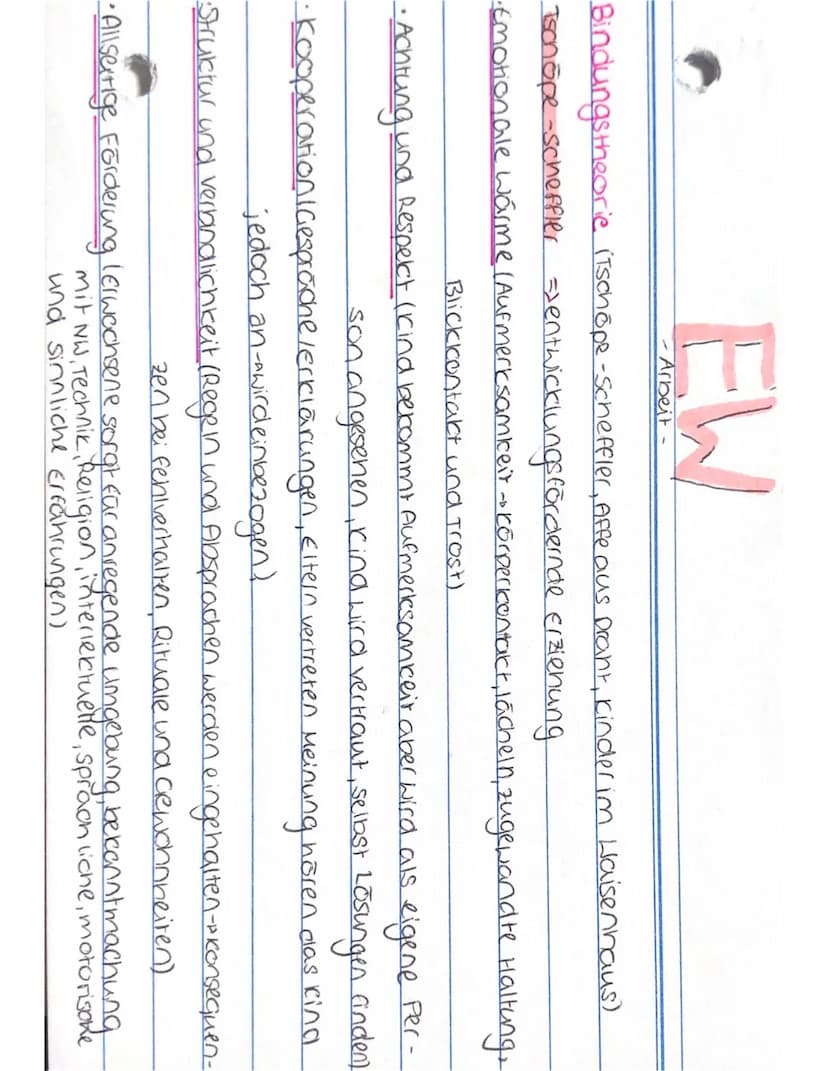 EW
- Arbeit -
Bindungstheorie (Tschöpe-Scheffler, Affe aus Draht, Kinder im Waisenhaus)
Tschöpe-Scheffler => entwicklungsfördernde Erziehung
· Emotionale Wärme (Aufmerksamkeit → Körperkontakt, lächeln, zugewandte Haltung,
Blickkontakt und Trost)
· Achtung und Respekt (Kind bekommt Aufmerksamkeit aber wird als eigene Per-
son angesehen, Kind wird vertraut, selbst Lösungen finden)
· Kooperation (Gespräche/Erklärungen, Eltern vertreten Meinung hören das Kind
jedoch an → wird einbezogen)
· Struktur und Verbindlichkeit (Regeln und Absprachen werden eingehalten → Konsequen-
zen bei Fehlverhalten, Rituale und Gewohnheiten)
· Allseitige Förderung (Erwachsene sorgt für anregende Umgebung, bekanntmachung
mit NW, Technik, Religion, intellektuelle, sprachliche, motorische
und sinnliche Erfahrungen)